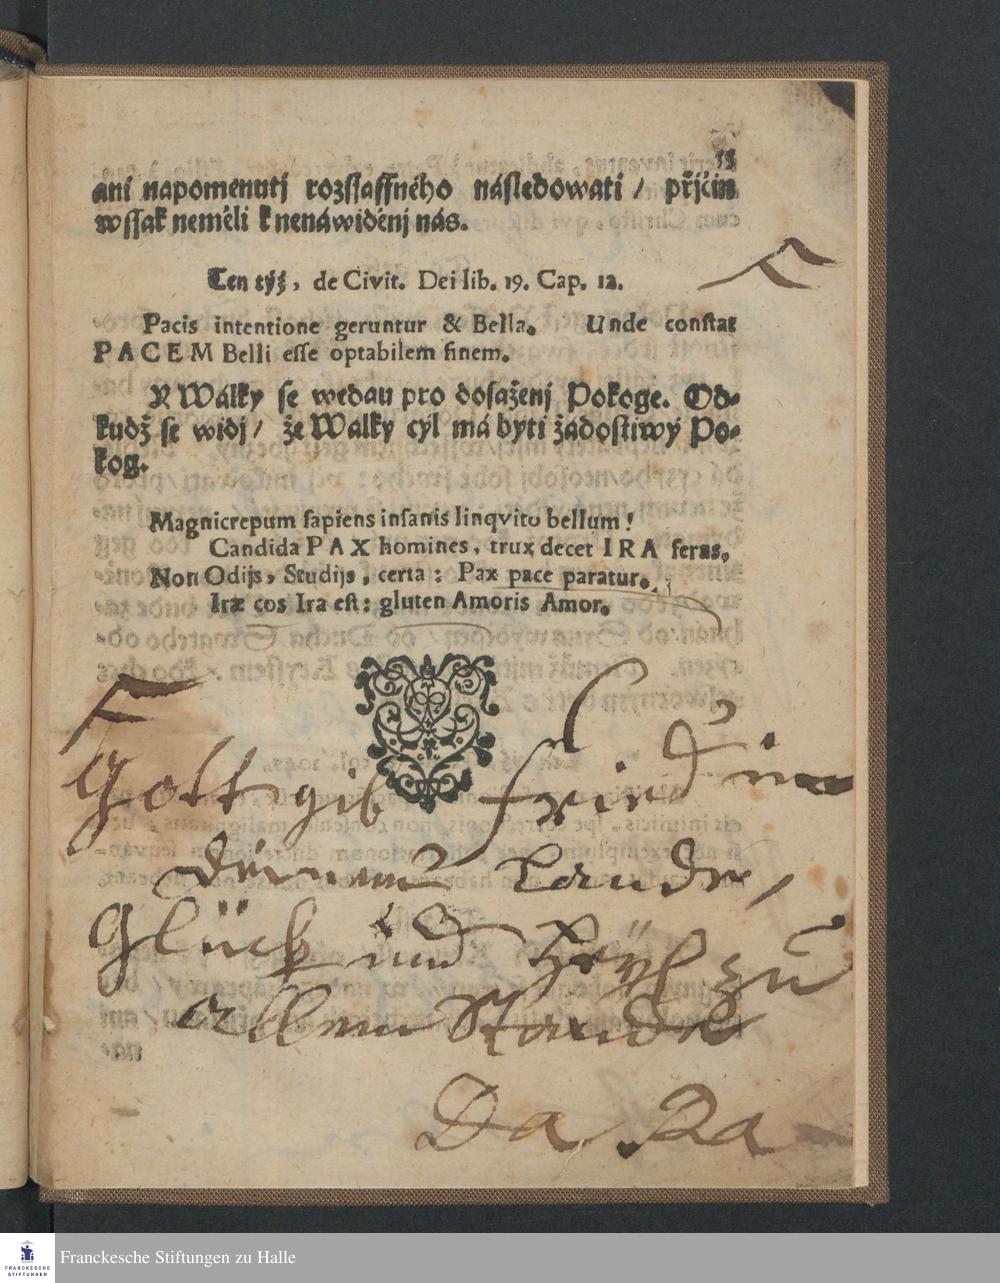 ani napomenutj rozssaffného následowati / přjčin
wssak neměli k nenáwiděnj nás.
Ten týž, de Civit. Dei lib. 19. Cap. 12.
Pacis intentione geruntur & Bella. Unde constat
PACEM Belli esse optabilem finem.
Y Wálky se wedau pro dosaženj Pokoge. Od-
kudž se widj / že Walky cýl má byti žádostiwý Po-
kog.
Magnicrepum sapiens insanis linqvito bellum!
Candida PAX homines, trux decet IRA feras,
Non Odijs, Studijs, certa: Pax pace paratur.
Iræ cos Ira est: gluten Amoris Amor.
Gott gib fried in
deinem Lande,
Glück und Heyl zu
allem Stande
Da Pa
Franckesche Stiftungen zu Halle
FRANCKESCHE
STIFTUNGEN